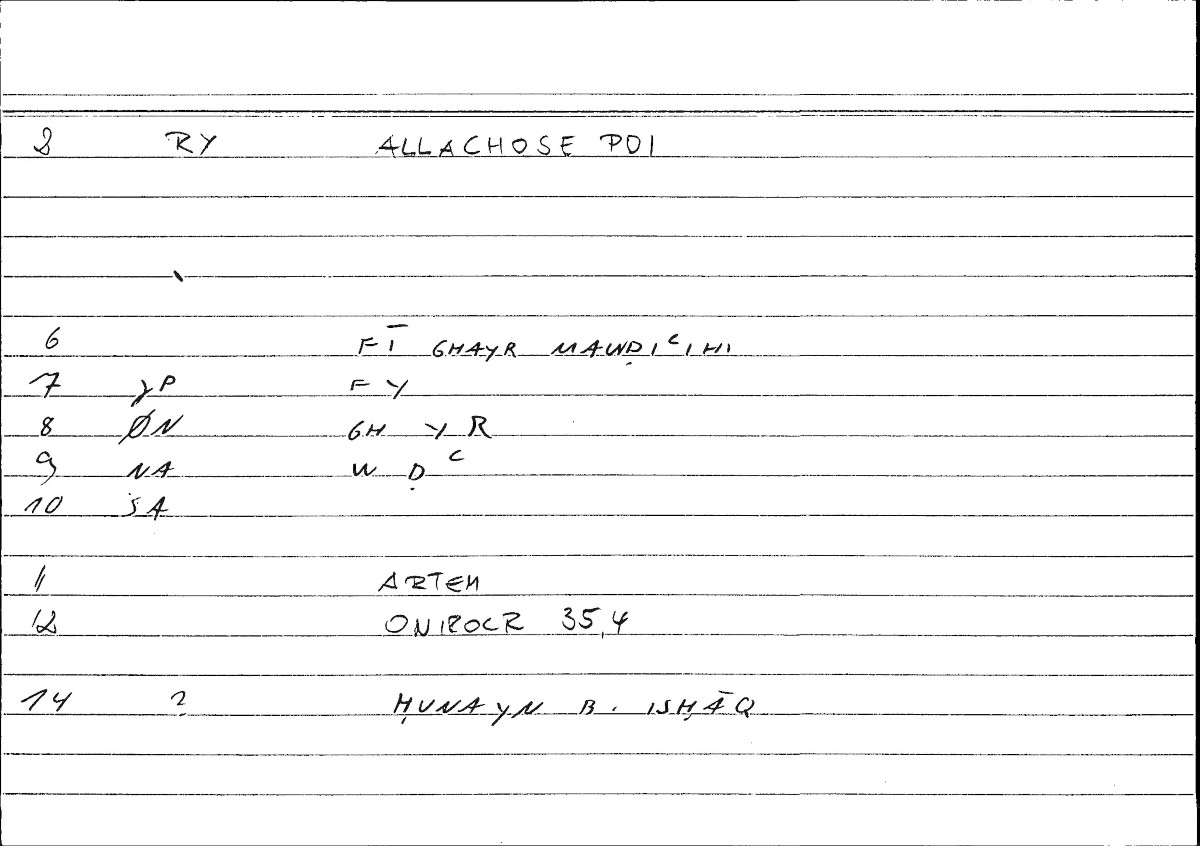 2 RY ALLACHOSE POI
6 FĪ GHAYR MAWḌIᶜIHI
7 γP FY
8 ØN GH Y R
9 NA W Ḍ ᶜ
10 SA
11 ARTEM
12 ONIROCR 35,4
14 2 ḤUNAYN B. ISḤĀQ